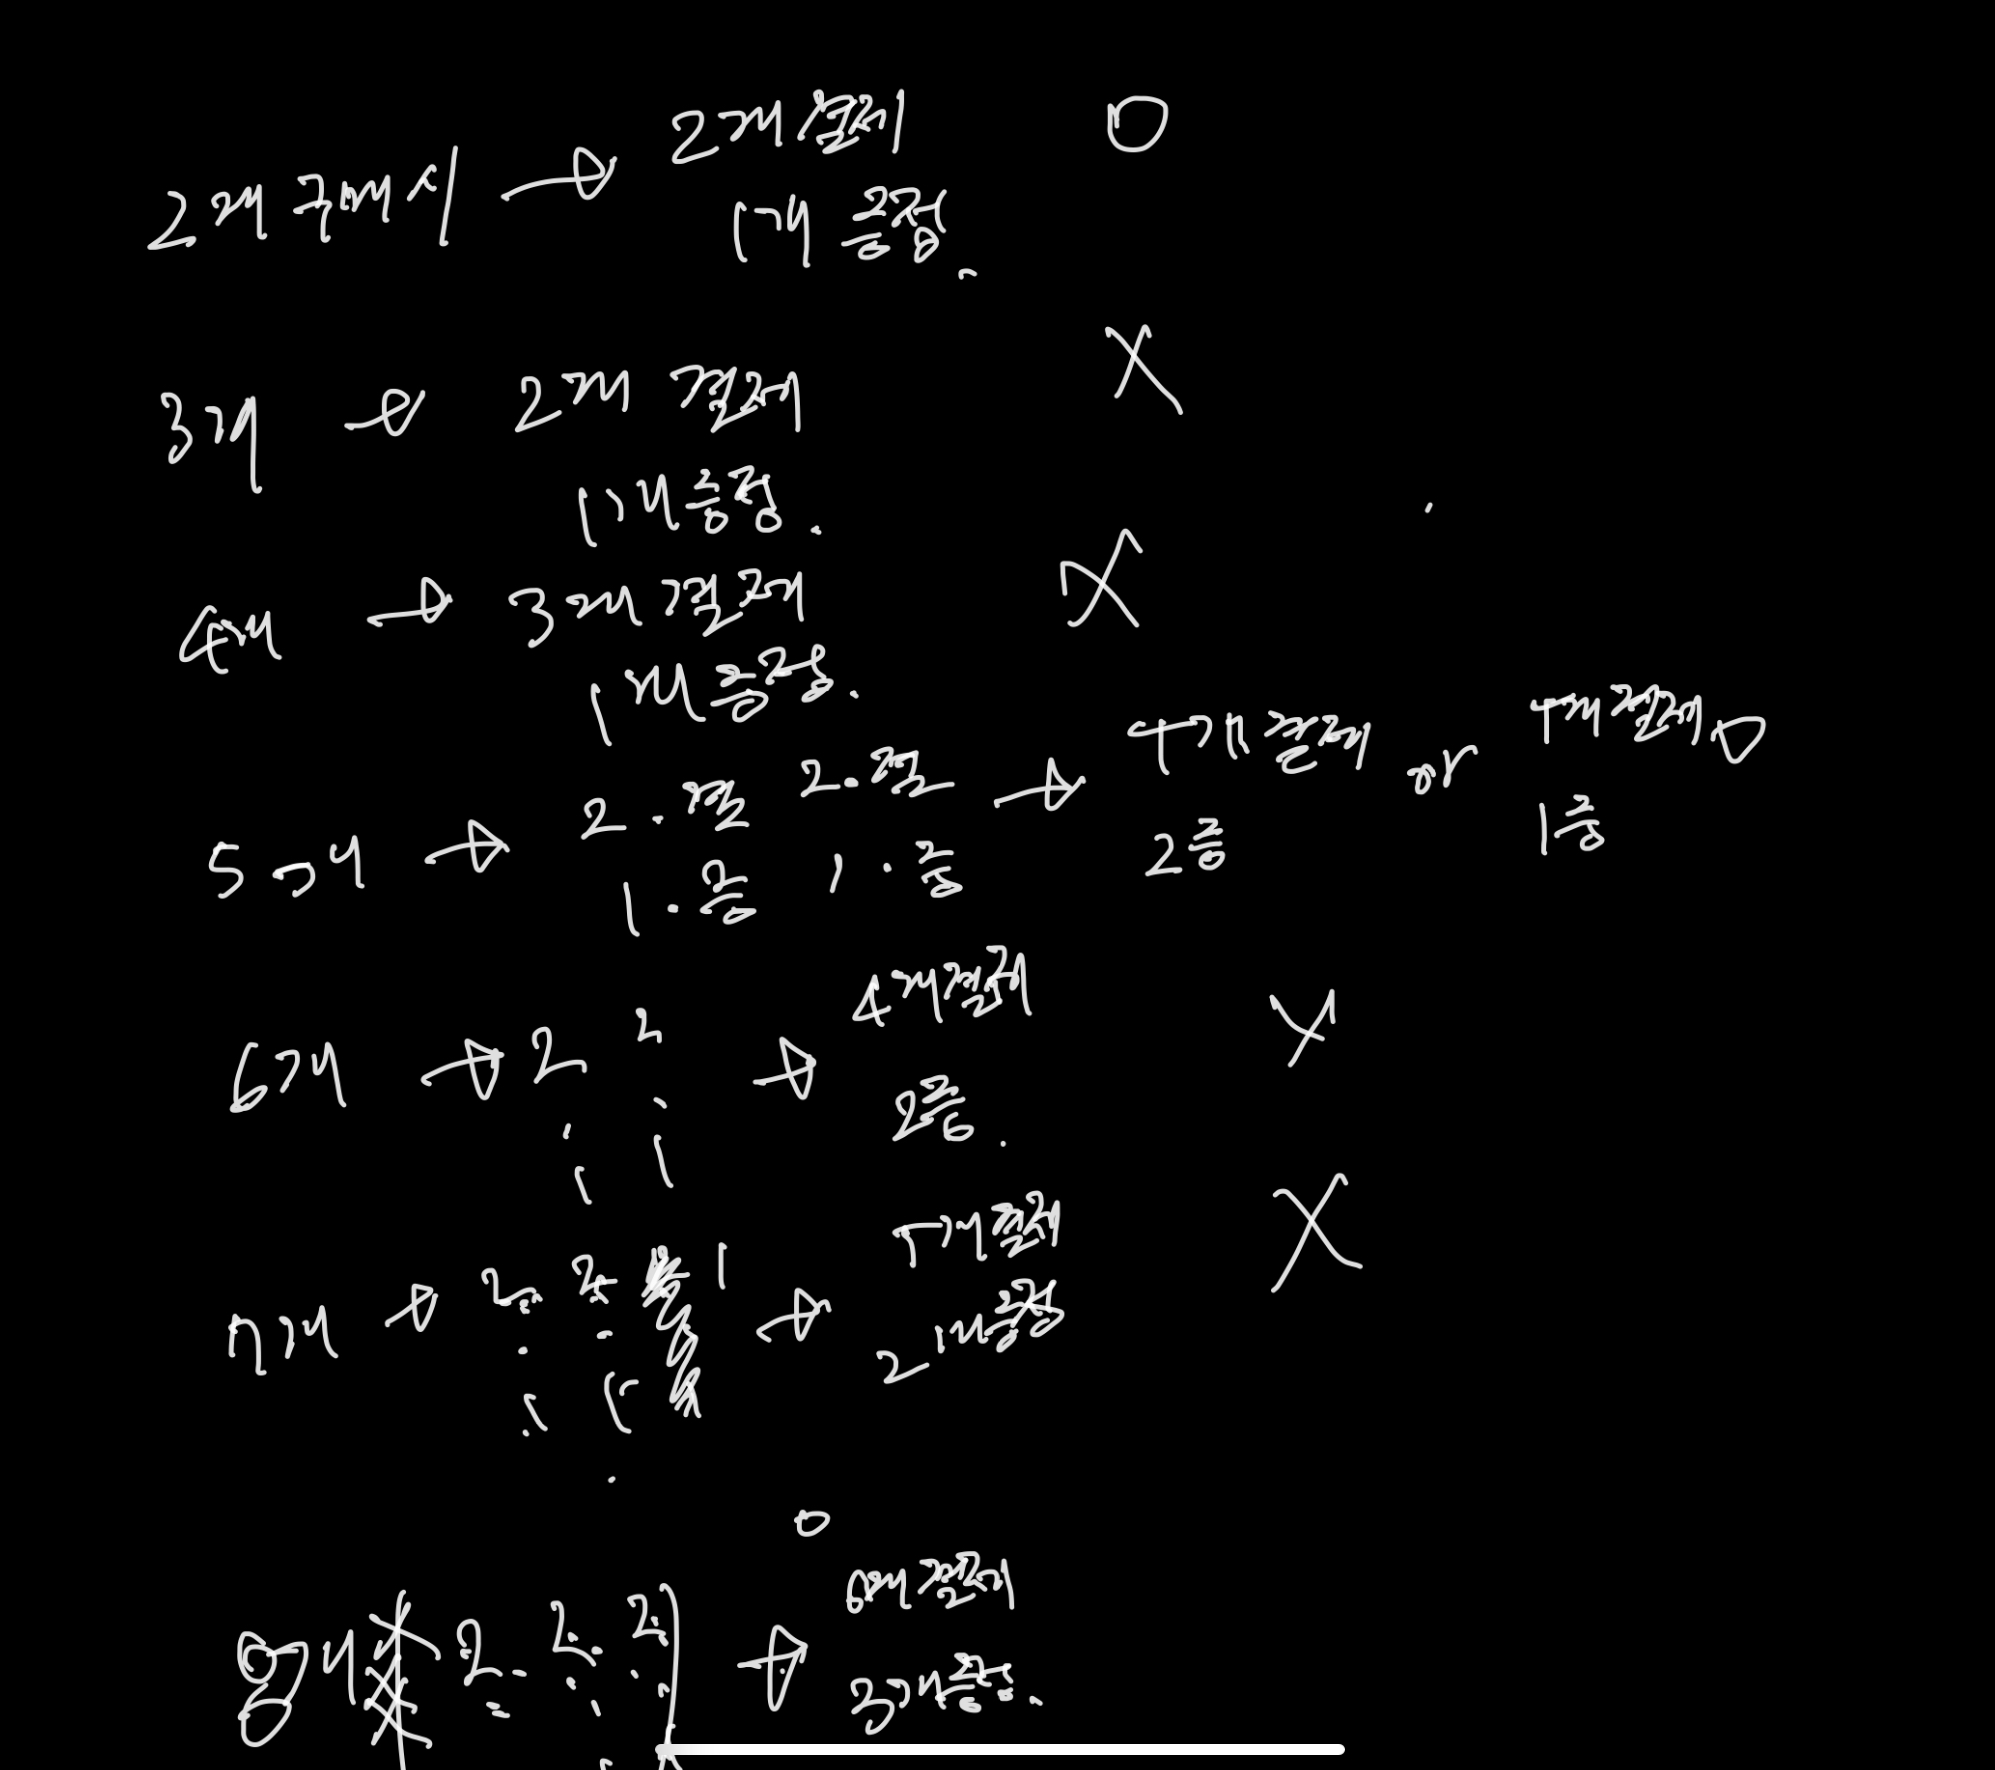 2개 구매시 → 2개 결제 O
1개 증정.
3개 → 2개 결제 X
1개 증정.
4개 → 3개 결제 X
1개 증정.
5개 → 2·결 2·결 → 4개 결제 or 4개 결제 O
1·증 1·증 2증 1증
6개 → 2 2 → 4개 결제 X
1 1 2증.
7개 → 2 2 1 → 개 결제 X
1 1 2개 증정
8개 2 2 2 → 6개 결제
3개 증.